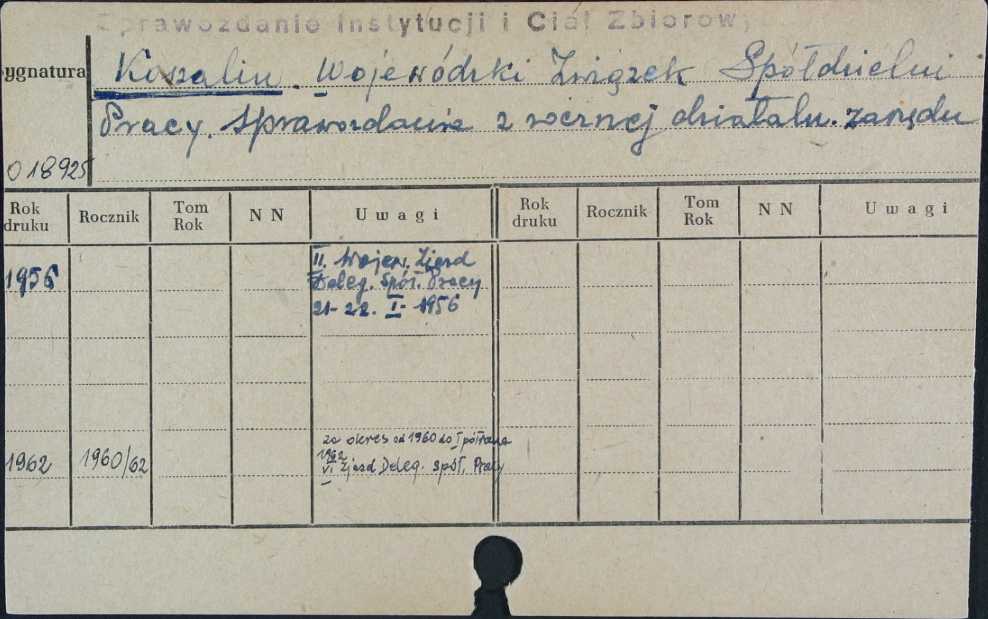 Sprawozdanie Instytucji i Ciał Zbiorowy
ygnatura
Koszalin. Wojewódzki Związek Spółdzielni
Pracy. Sprawozdanie z rocznej działaln. zarządu
018925
Rok druku Rocznik Tom Rok NN Uwagi Rok druku Rocznik Tom Rok NN Uwagi
1956 II. Wojew. Zjazd
Deleg. Spół. Pracy
21-22. I- 1956
za okres od 1960 do I półrocza
1962
1962 1960/62 VI Zjazd Deleg. spół. Pracy